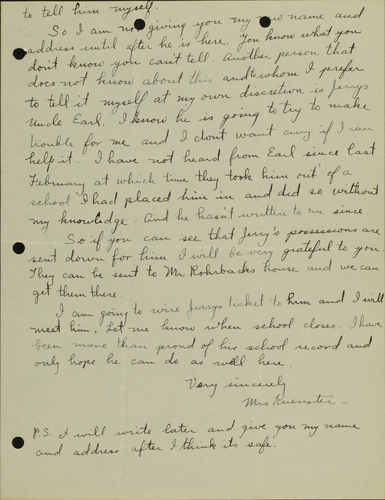 to tell him myself.
So I am not giving you my new name and
address until after he is here. You know what you
don't know you can't tell. Another person that
does not know about this and whom I prefer
to tell it myself at my own discretion is Jerrys
Uncle Earl. I know he is going to try to make
trouble for me and I dont want any if I can
help it. I have not heard from Earl since last
February at which time they took him out of a
school I had placed him in and did so without
my knowledge. And he hasn't written to me since
So if you can see that Jerry's possessions are
sent down for him I will be very grateful to you.
They can be sent to Mr Rohrbacks house and we can
get them there.
I am going to wire Jerrys ticket to him and I will
meet him. Let me know when school closes. I have
been more than proud of his school record and
only hope he can do as well here.
Very sincerely
Mrs Kuenster -
P.S. I will write later and give you my name
and address after I think its safe.